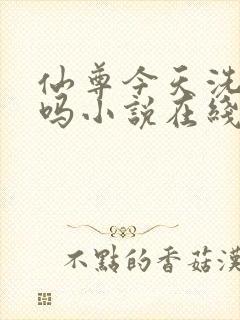 仙尊今天洗
吗小説在綫
不點的香菇漢